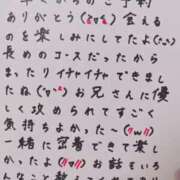 早くからのご予約
ありがとう(≧▽≦)会える
のを楽しみにしてたよ(^o^)
長めのコースだったから
まったりイチャイチャできまし
たね(≧▽≦)お兄さんに優
しく攻められてすごく
気持ちよかった〜(〃ω〃)
一緒に密着できて楽し
かったよ(〃▽〃)お話もいろ